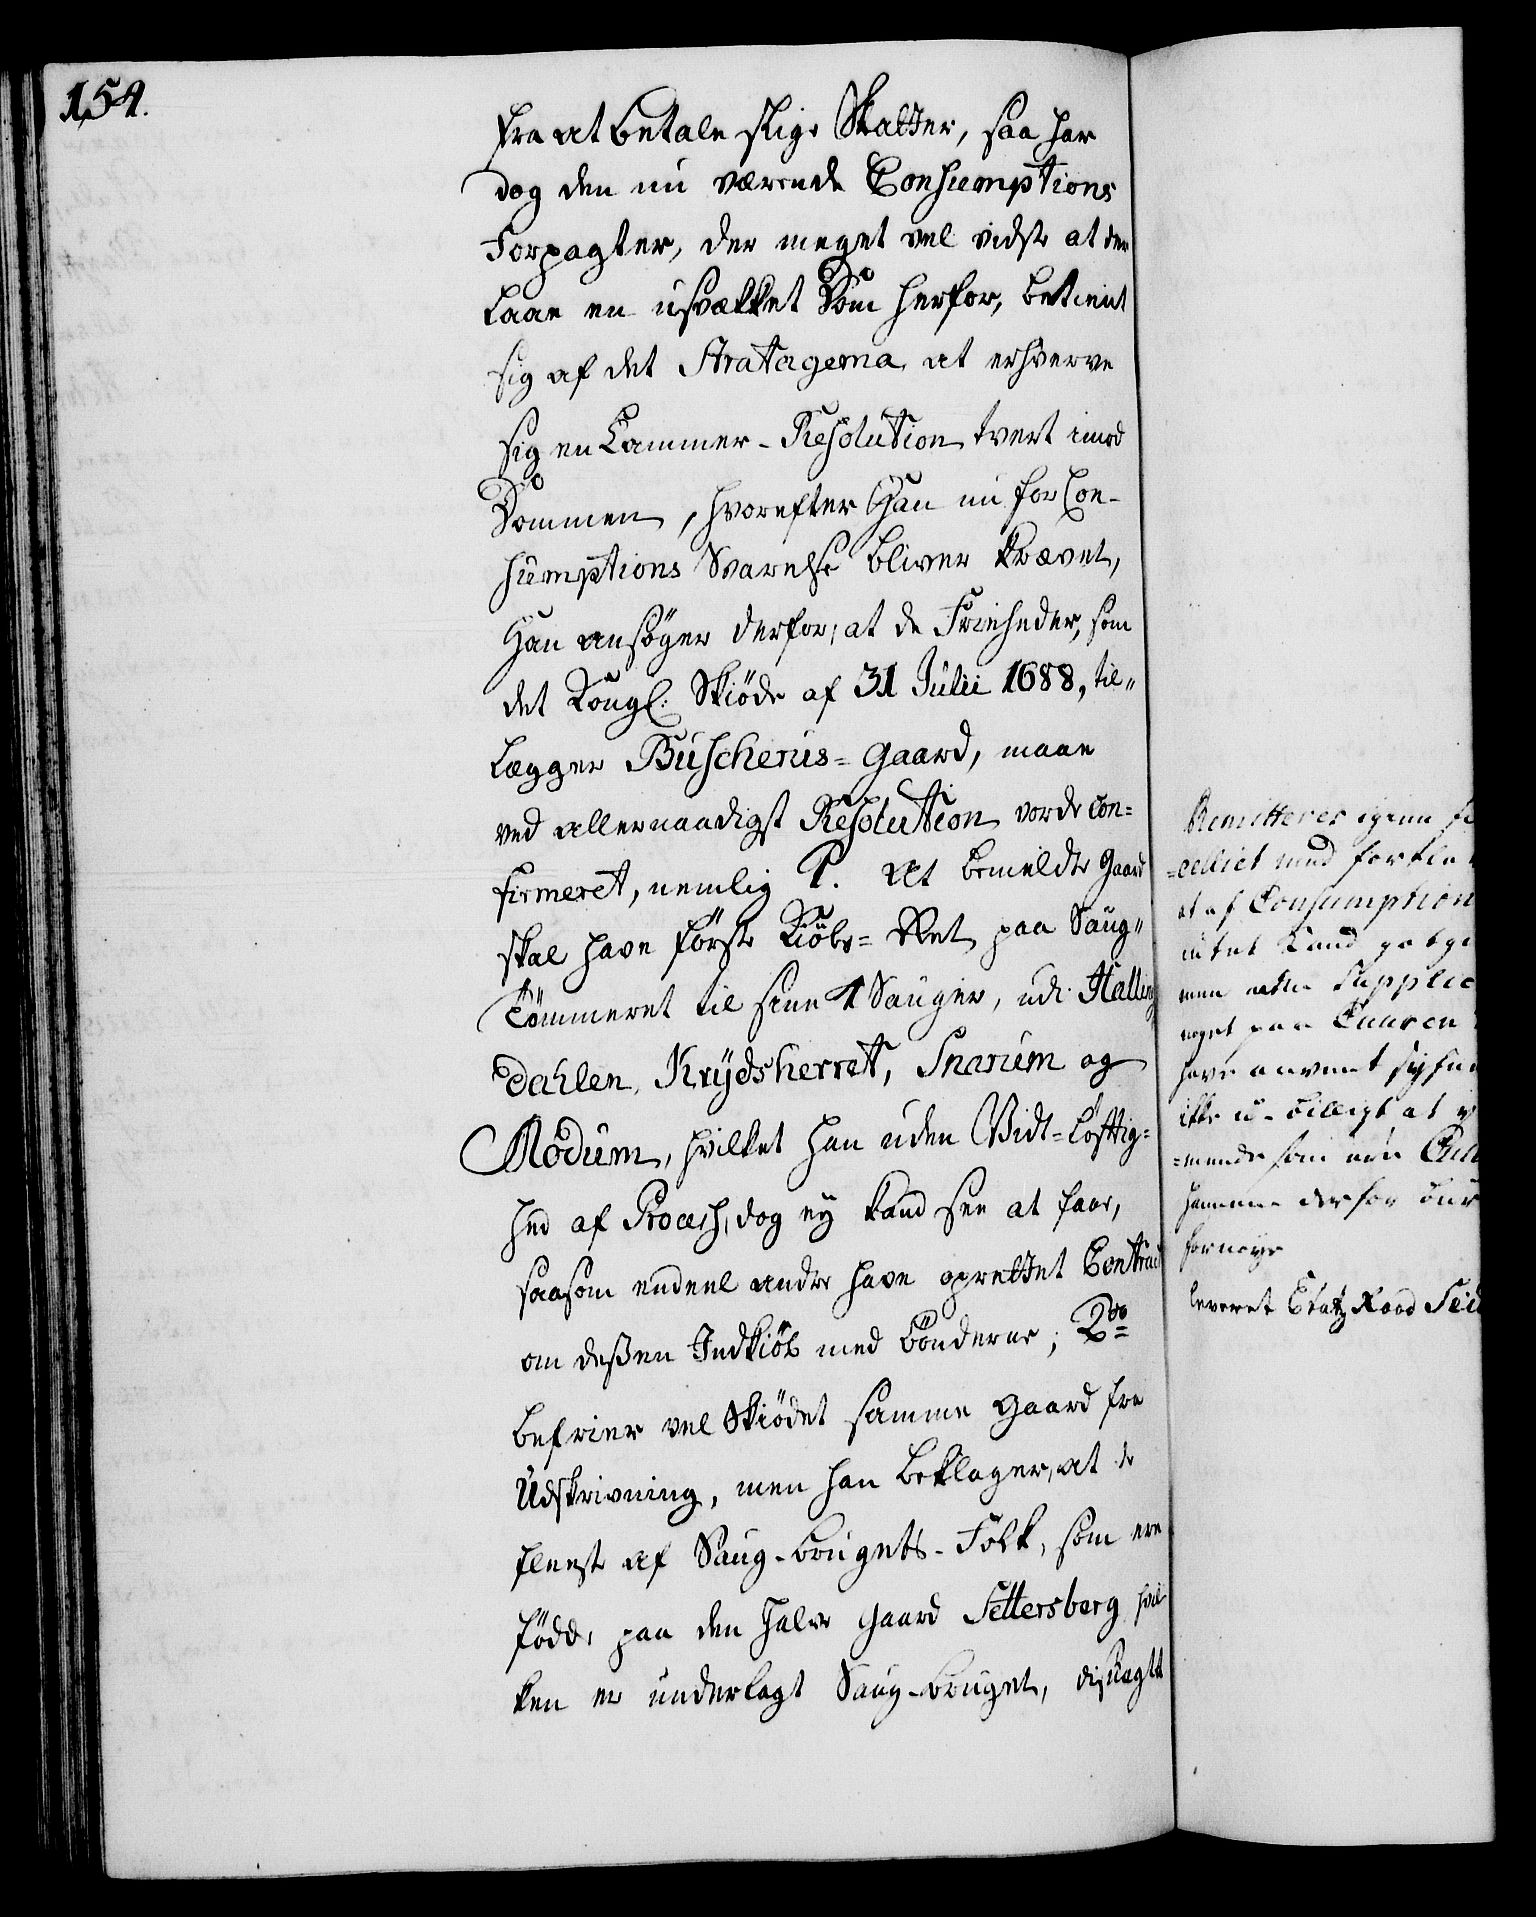 154.
fra at betale slige Skatter, saa har
dog den nu værende Consumptions
Forpagter, der meget vel vidste at der
laae en usvækket Dom herfor, betient
sig af det Stratagema at erhverve
sig en Cammer-Resolution tvert imod
Dommen, hvorefter Han nu for Con-
sumptions Svarelse bliver krævet,
Han ansøger derfor, at de Friheder, som
det Kongl: Skiøde af 31 Julii 1688, til„
lægger Buscherus=Gaard, maae
ved allernaadigst Resolution vorde con=
firmeret, nemlig 1. At bemeldte Gaard
skal have første Kiøbs=Ret paa Saug„
Tømmeret til sine 4 Sauger, udi Halling
Dahlen, Krydsherret, Snarum og
Modum, hvilket han uden Vidt=Løftig=
hed af Process, dog ey kand see at faae,
saasom endeel andre have oprettet Contract
om deßen Indkiøb med Bønderne; 2do
befrier vel Skiødet samme Gaard fra
Udskrivning, men han beklager, at de
fleeste af Saug-brugets-Folk, som ere
fødde paa den halve Gaard Settersberg hvil
ken er underlagt Saug-bruget,
Remitteres igien
-cellict med forkla
at af Consumption
intet kand
men Supplic
noget paa
have anvent
ikke u-billigt at
-mende som
hannem derfor
fornøye
leveret Etatz Raad